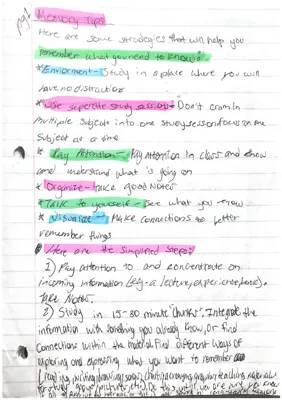 pg 1
Memory Tips
Here are some strategies that will help you
remember what you need to know:
* Enviorment - Study in a place where you will
have no distraction
* Use seperate study sessions - Don't cram in
multiple subjects into one study session focus on one
subject at a time
* Pay Attention - Pay attention in class and know
and understand what is going on
* Organize - take good notes
* Talk to yourself - see what you know
* Visualize - Make connections to better
remember things
Here are the simplified steps:
1) Pay attention to and concentrate on
incoming information (eg - a lecture, experience, etc).
Take Notes.
2) Study in 15-30 minute "chunks". Integrate the
information with something you already know, or find
connections within the material. Find different ways of
exploring and expressing what you want to remember
(reading, writing, drawing, charting, teaching material